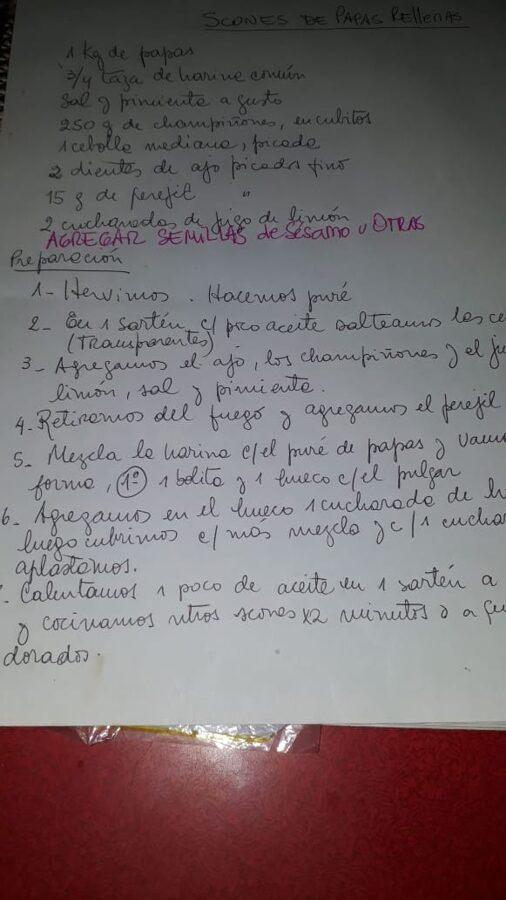 SCONES DE PAPAS Rellenas
1 kg de papas
3/4 taza de harina común
sal y pimienta a gusto
250 g de champiñones, en cubitos
1 cebolla mediana, picada
2 dientes de ajo picados fino
15 g de perejil "
2 cucharadas de jugo de limón
AGREGAR SEMILLAS de Sésamo u OTRAS
Preparación
1- Hervimos. Hacemos puré
2- En 1 sartén c/ poco aceite salteamos las ce
(Transparentes)
3- Agregamos el ajo, los champiñones y el ju
limón, sal y pimienta.
4- Retiramos del fuego y agregamos el perejil
5- Mezcla la harina c/el puré de papas y vamo
forma, 1º 1 bolita y 1 hueco c/el pulgar
6- Agregamos en el hueco 1 cucharada de
luego cubrimos c/más mezcla y c/1 cuchar
aplastamos.
Calentamos 1 poco de aceite en 1 sartén a
y cocinamos ntros scones x2 minutos o a
dorados.